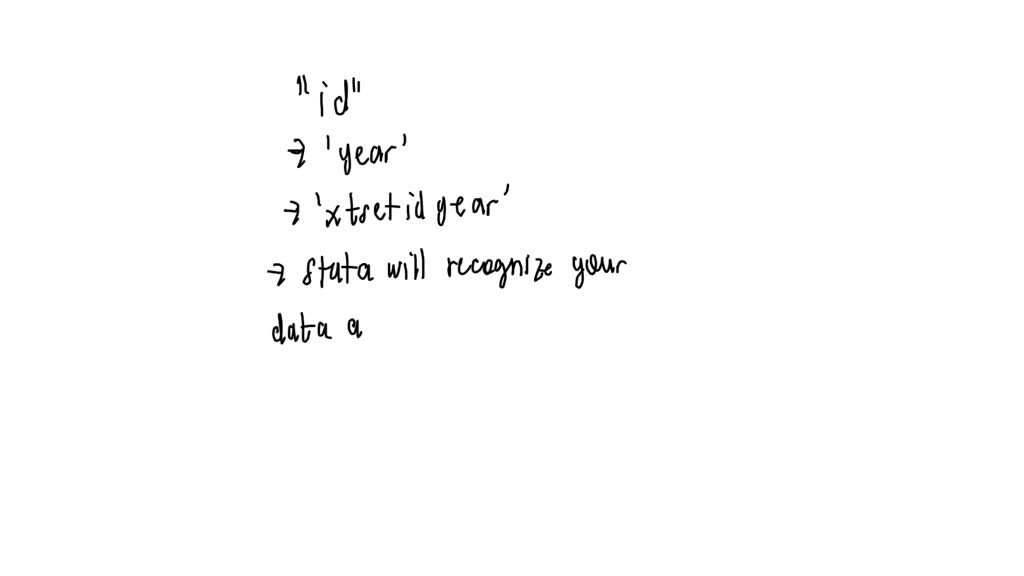 "id"
→ 'year'
→ 'xtset id year'
→ stata will recognize your
data a